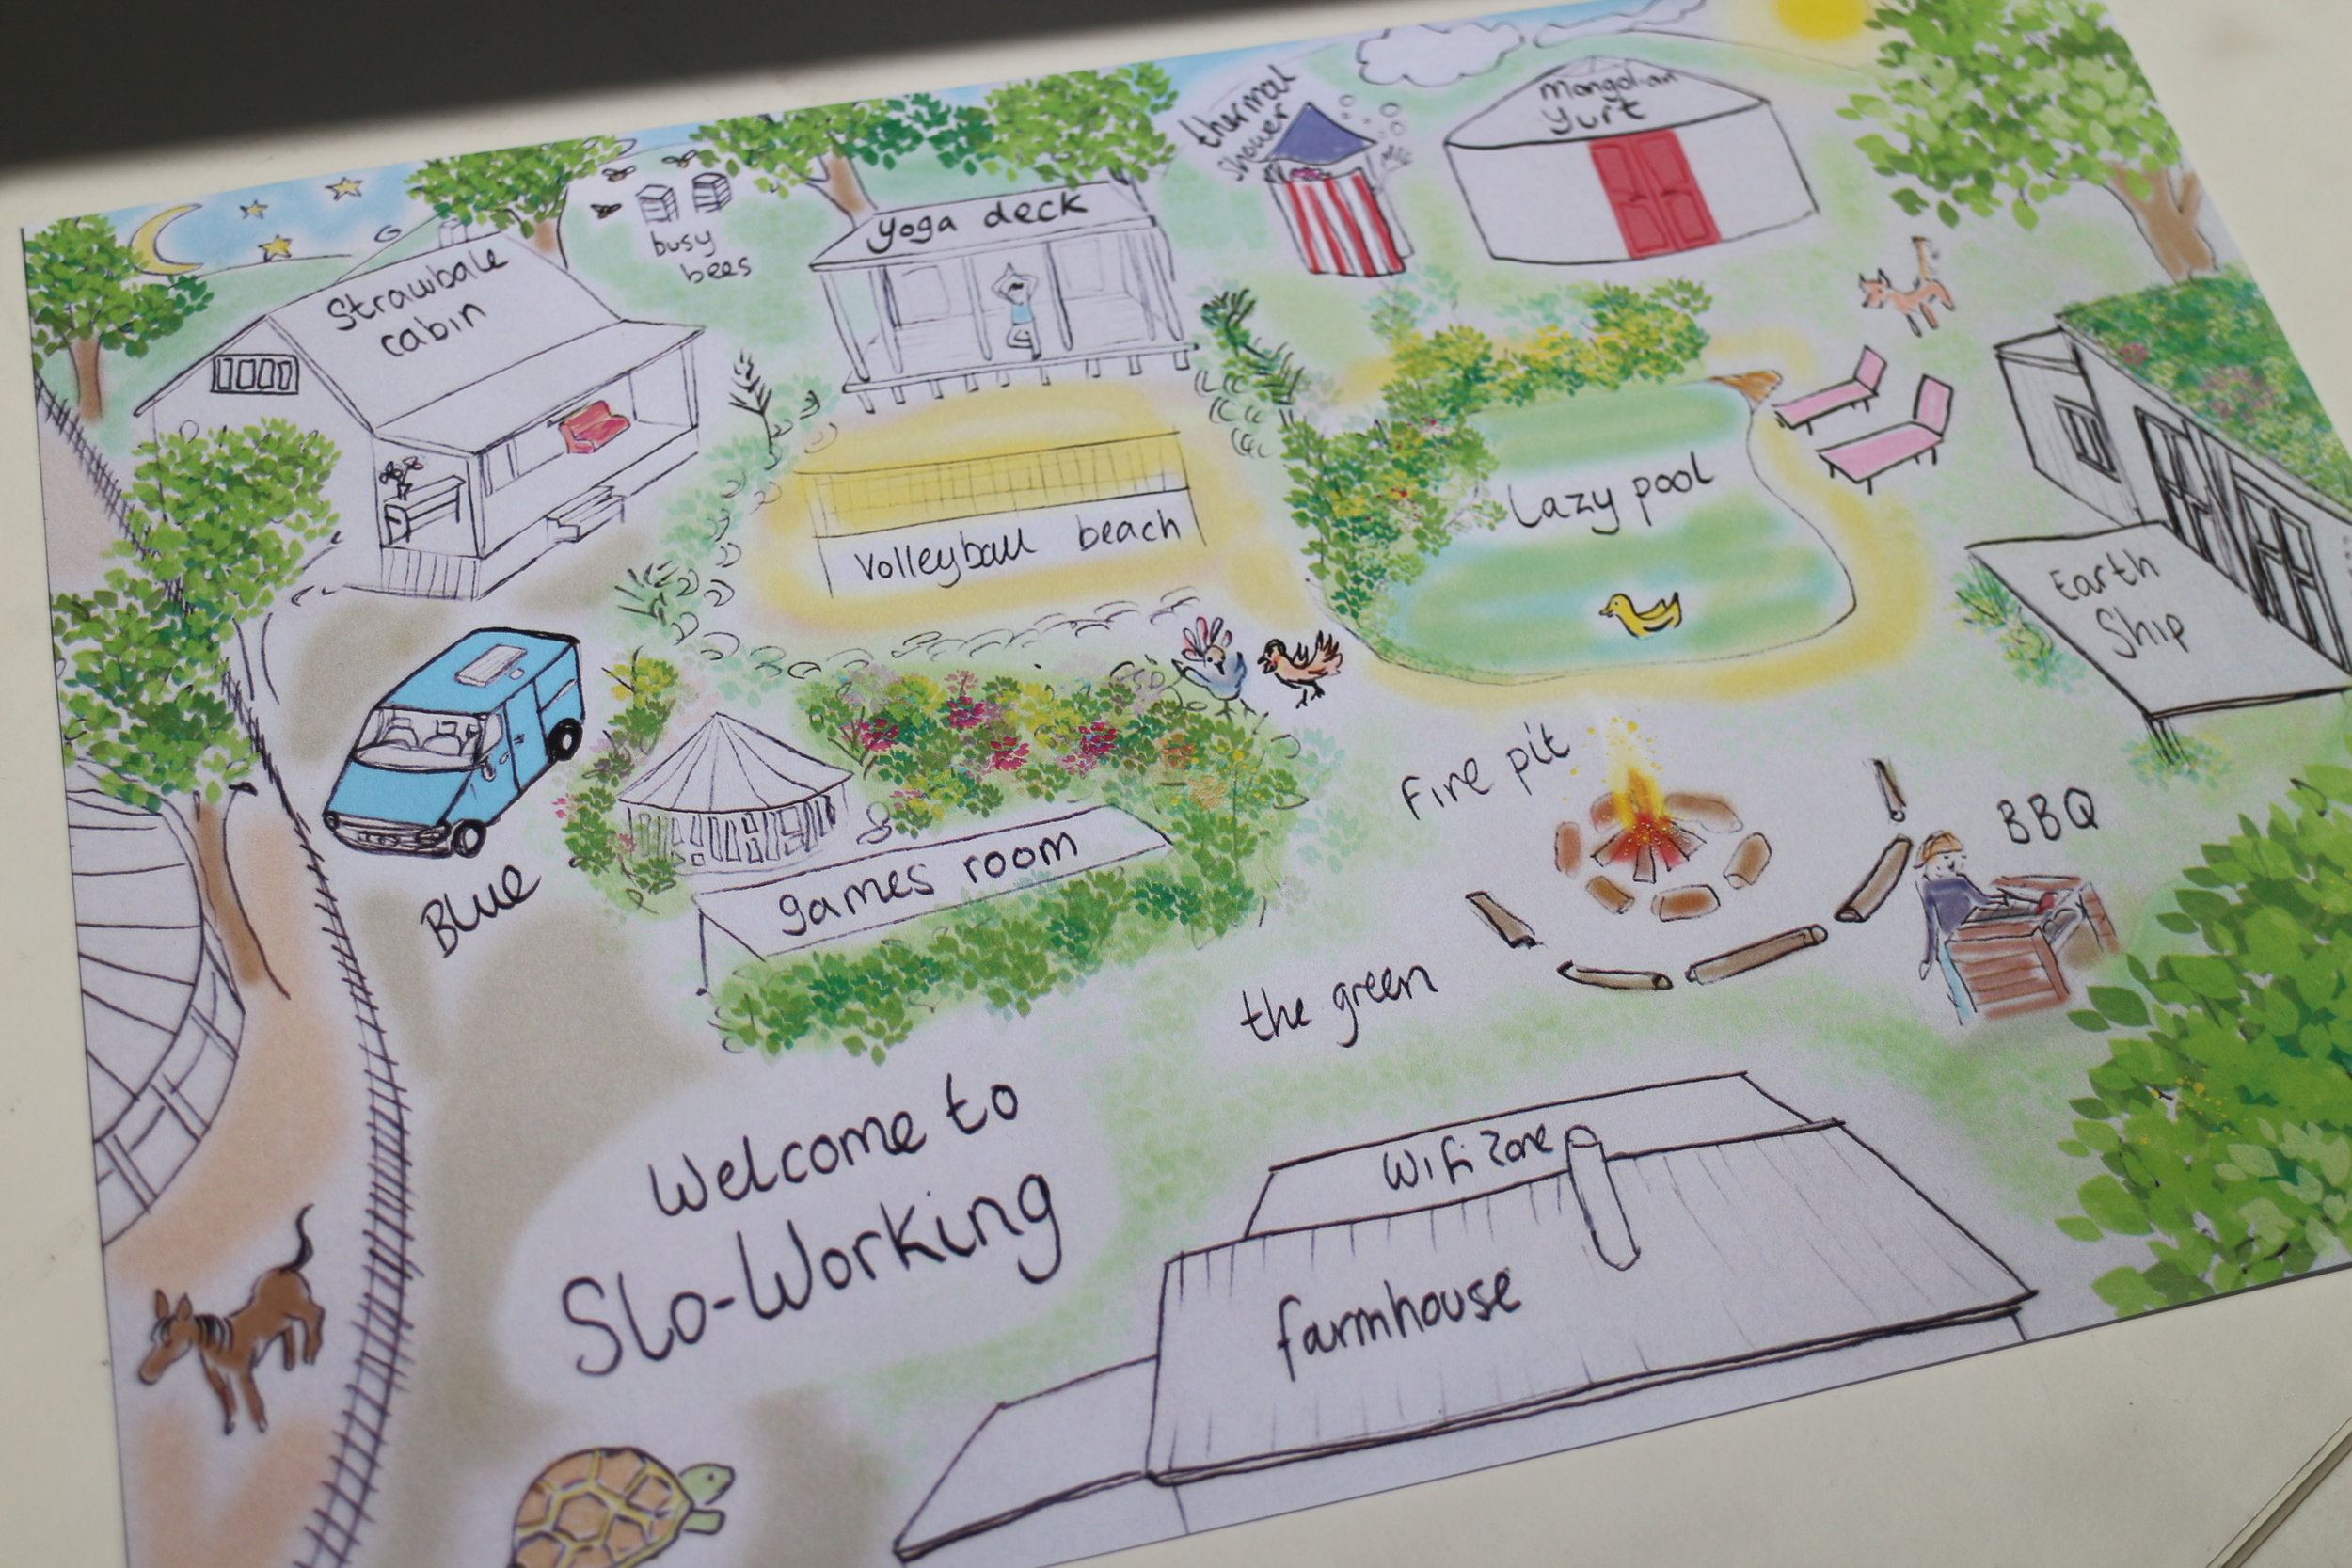 thermal
shower
Mongolian
Yurt
busy
bees
yoga deck
Strawbale
cabin
Lazy pool
Volleyball beach
Earth
Ship
Fire pit
BBQ
BLUE
games room
the green
Welcome to
Slo-Working
Wifi Zone
farmhouse